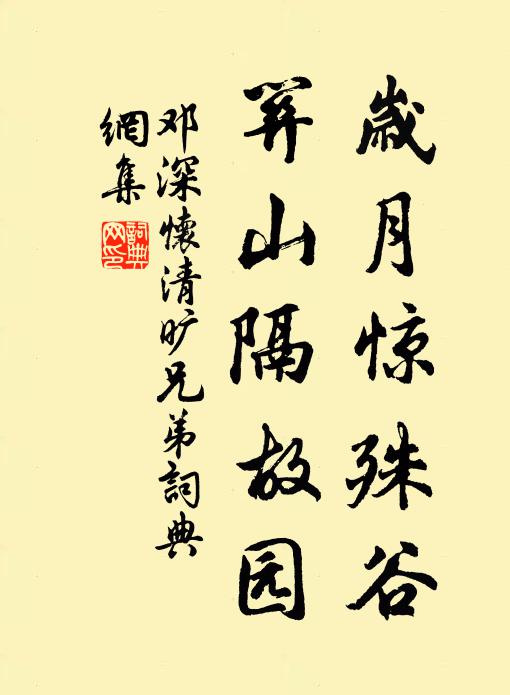 歲月惊殊谷
关山隔故园
邓深懷清旷兄弟詞典
網集
詞典
网印